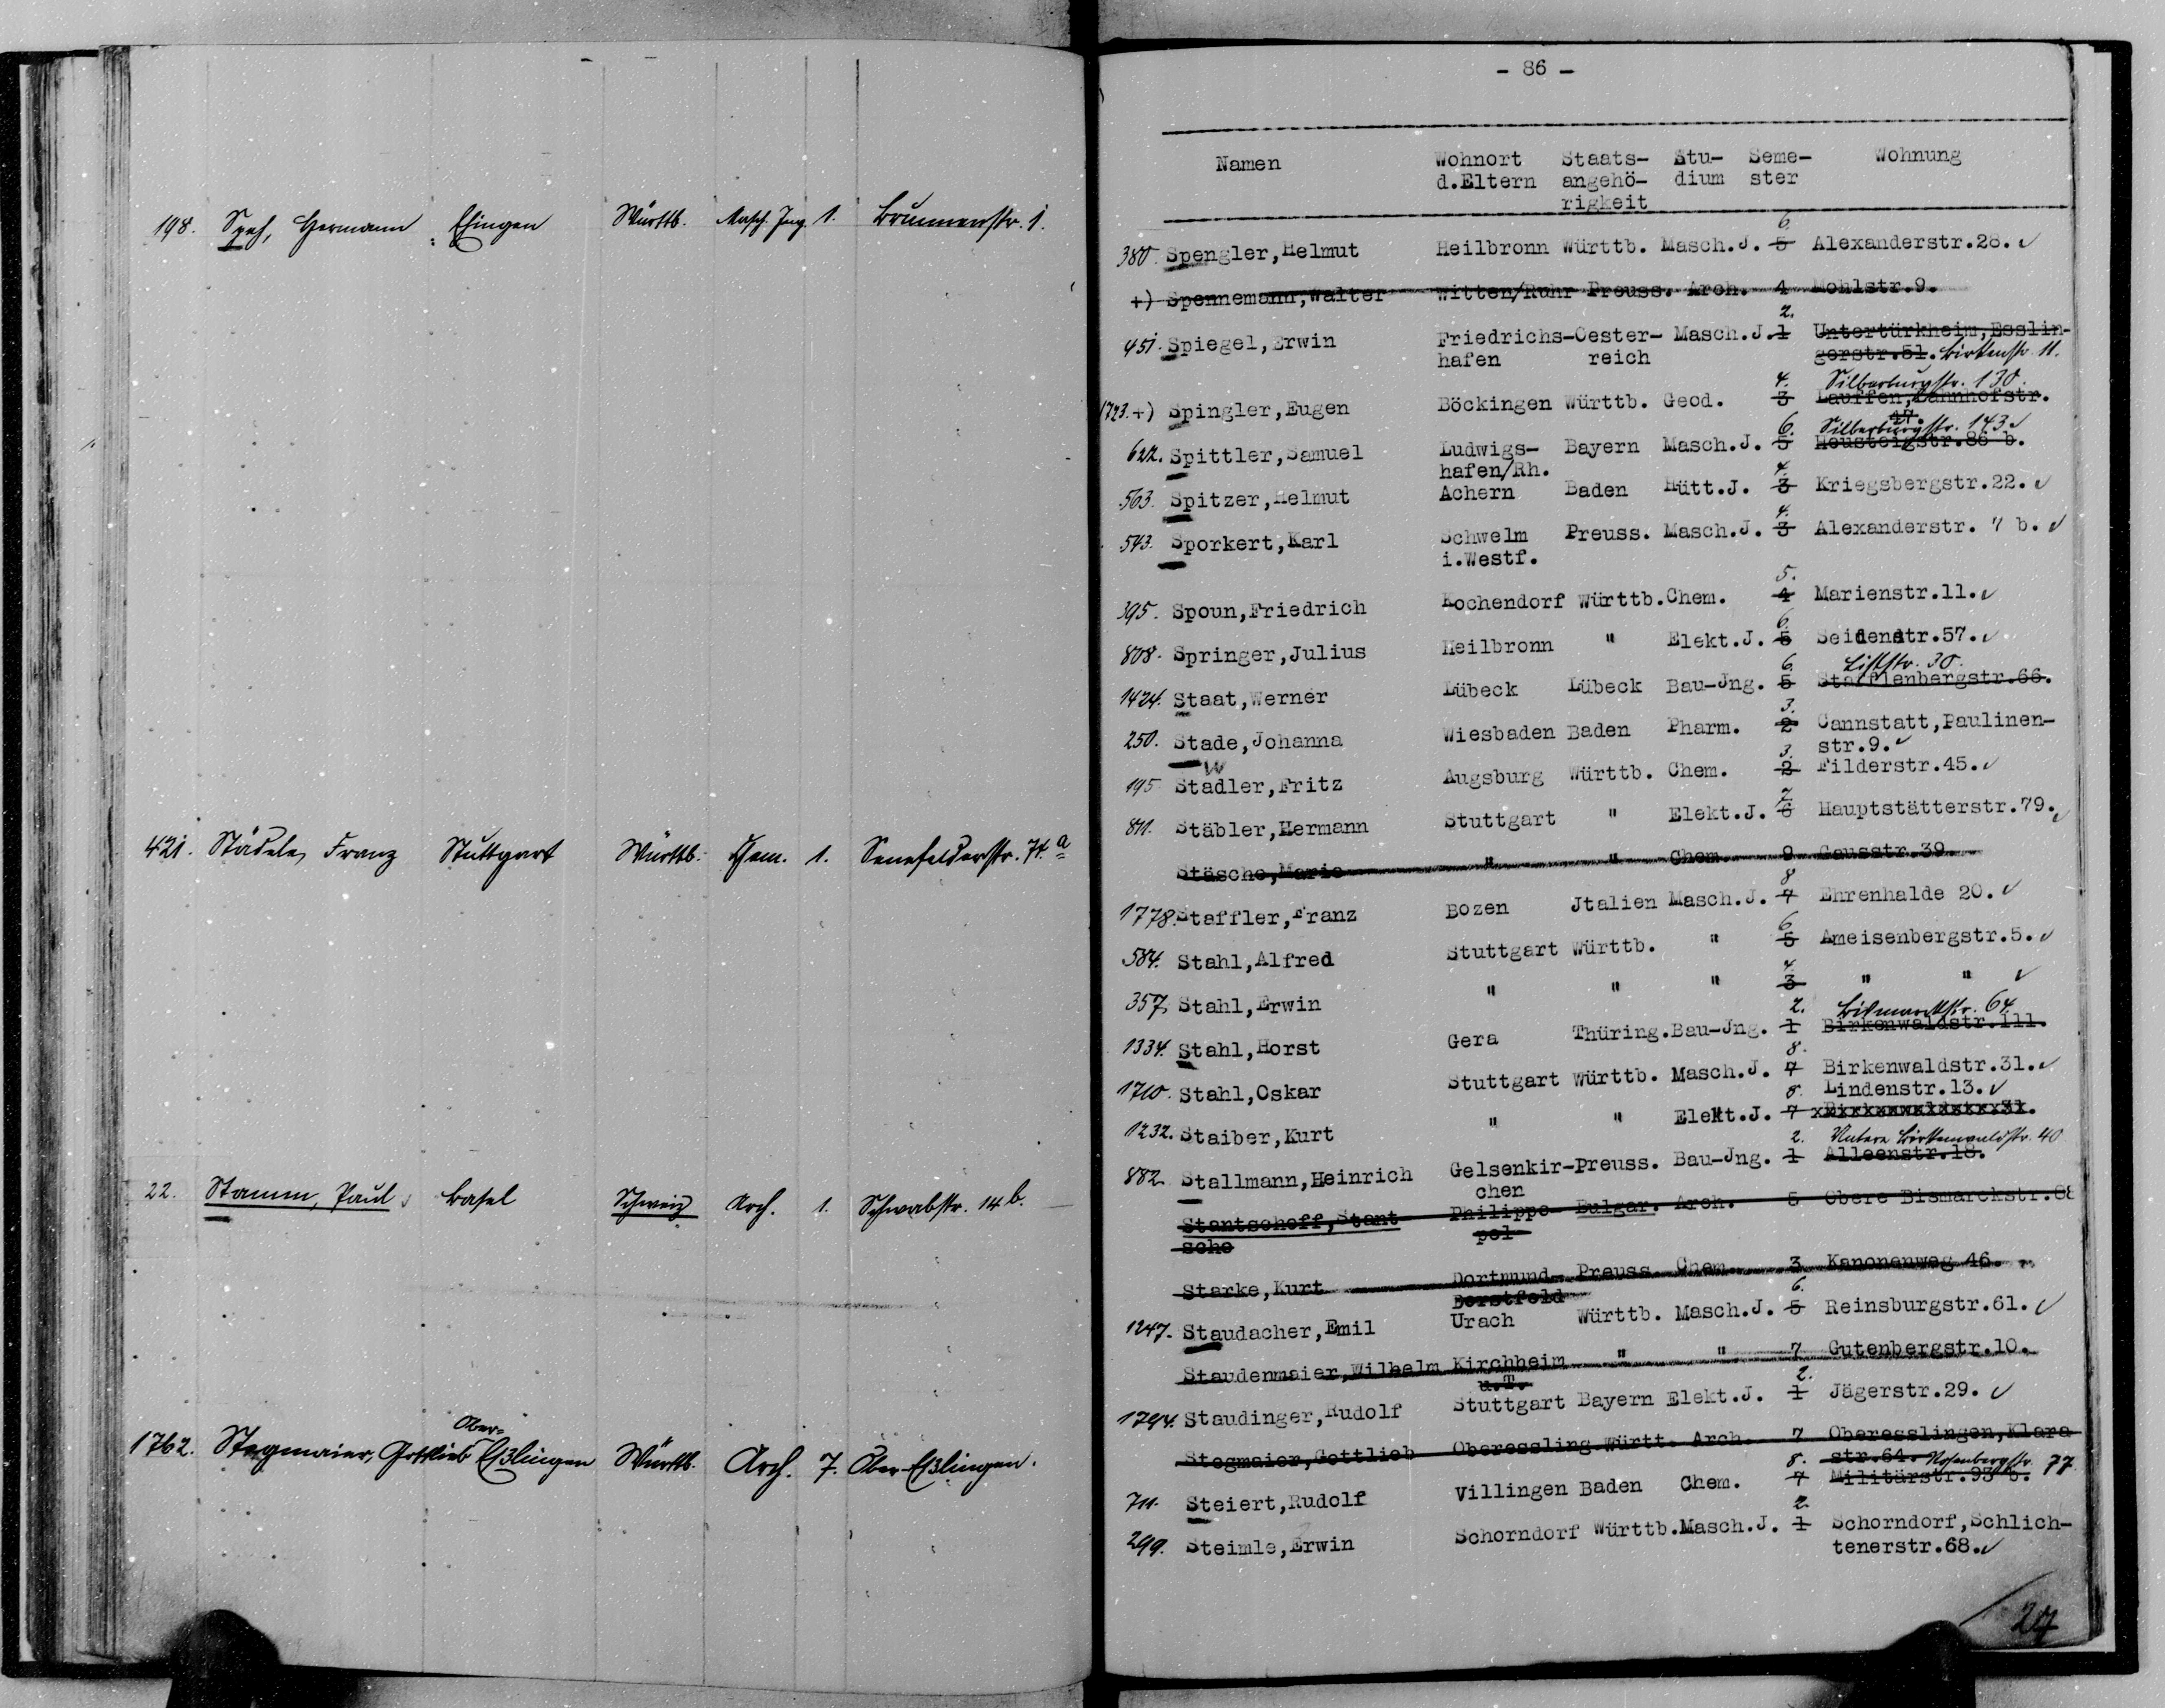 198. Speh, Hermann Ehingen Württb. Masch. Ing. 1. Brunnenstr. 1.
421. Städele, Franz Stuttgart Württb. Chem. 1. Senefelderstr. 74 a
22. Stamm, Paul Basel Schweiz Arch. 1. Schwabstr. 14 b.
Ober-
1762. Stegmaier, Gottlieb Eßlingen Württb. Arch. 7. Ober-Eßlingen.
- 86 -
Namen Wohnort Staats- Stu- Seme- Wohnung
d.Eltern angehö- dium ster
rigkeit
6.
380. Spengler,Helmut Heilbronn Württb. Masch.J. 5 Alexanderstr.28.
+) Spennemann,Walter Witten/Ruhr Preuss. Arch. 4 Mohlstr.9.
2.
451. Spiegel,Erwin Friedrichs- Oester- Masch.J. 1 Untertürkheim,Esslin-
hafen reich gerstr.51. Birkenstr. 11.
4. Silberburgstr. 130.
1723.+) Spingler,Eugen Böckingen Württb. Geod. 3 Lauffen,Bahnhofstr.
17.
6. Silberburgstr. 143
622. Spittler,Samuel Ludwigs- Bayern Masch.J. 5 Heusteigstr.86 b.
hafen/Rh.
4.
563. Spitzer,Helmut Achern Baden Hütt.J. 3 Kriegsbergstr.22.
4.
543. Sporkert,Karl Schwelm Preuss. Masch.J. 3 Alexanderstr. 7 b.
i.Westf.
5.
395. Spoun,Friedrich Kochendorf Württb. Chem. 4 Marienstr.11.
6.
808. Springer,Julius Heilbronn " Elekt.J. 5 Seidenstr.57.
6. Liststr. 30.
1424. Staat,Werner Lübeck Lübeck Bau-Jng. 5 Stafflenbergstr.66.
3.
250. Stade,Johanna Wiesbaden Baden Pharm. 2 Cannstatt,Paulinen-
str.9.
W 3.
195 Stadler,Fritz Augsburg Württb. Chem. 2 Filderstr.45.
7
811. Stäbler,Hermann Stuttgart " Elekt.J. 6 Hauptstätterstr.79.
Stäsche,Marie " " Chem. 9 Gausstr.39.
8
1778. Staffler,Franz Bozen Jtalien Masch.J. 7 Ehrenhalde 20.
6
584. Stahl,Alfred Stuttgart Württb. " 5 Ameisenbergstr.5.
4
357. Stahl,Erwin " " " 3 " "
2. Bismarckstr. 64.
1334. Stahl,Horst Gera Thüring. Bau-Jng. 1 Birkenwaldstr.111.
8.
1710. Stahl,Oskar Stuttgart Württb. Masch.J. 7 Birkenwaldstr.31.
8. Lindenstr.13.
1232. Staiber,Kurt " " Elekt.J. 7 xBirkenwaldstrx31.
2. Untere Birkenwaldstr. 40
882. Stallmann,Heinrich Gelsenkir- Preuss. Bau-Jng. 1 Alleenstr.18.
chen
Stantschoff,Stant Philippo- Bulgar. Arch. 5 Obere Bismarckstr.68
sche pol
Starke,Kurt Dortmund- Preuss. Chem. 3 Kanonenweg 46.
Dorstfeld
6.
1247. Staudacher,Emil Urach Württb. Masch.J. 5 Reinsburgstr.61.
Staudenmaier,Wilhelm Kirchheim " " 7 Gutenbergstr.10.
u.T.
2.
1794. Staudinger,Rudolf Stuttgart Bayern Elekt.J. 1 Jägerstr.29.
Stegmaier,Gottlieb Oberessling Württ. Arch. 7 Oberesslingen,Klara
str.64.
8. Rosenbergstr. 77
711. Steiert,Rudolf Villingen Baden Chem. 7 Militärstr.93 b.
2.
299. Steimle,Erwin Schorndorf Württb. Masch.J. 1 Schorndorf,Schlich-
tenerstr.68.
27